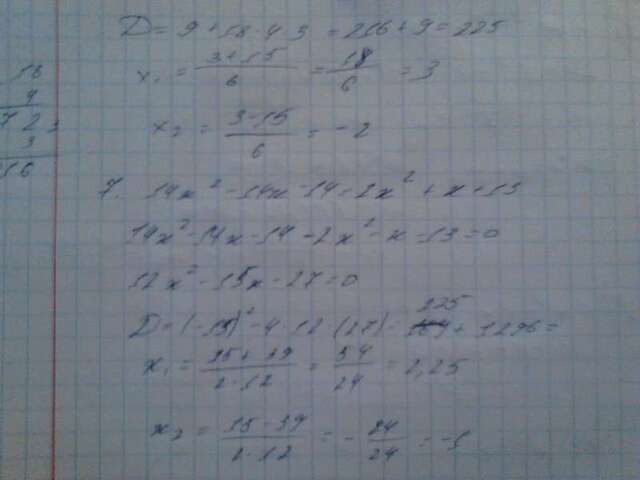 D = 9 + 18 · 4 · 3 = 216 + 9 = 225
x₁ = (3+15)/6 = 18/6 = 3
x₂ = (3-15)/6 = -2
18
4
72
3
16
7. 14x² - 14x - 14 = 2x² + x + 13
14x² - 14x - 14 - 2x² - x - 13 = 0
12x² - 15x - 27 = 0
D = (-15)² - 4 · 12 · (27) = 225 + 1296 =
x₁ = (15+39)/(2·12) = 54/24 = 2,25
x₂ = (15-39)/(2·12) = -24/24 = -1